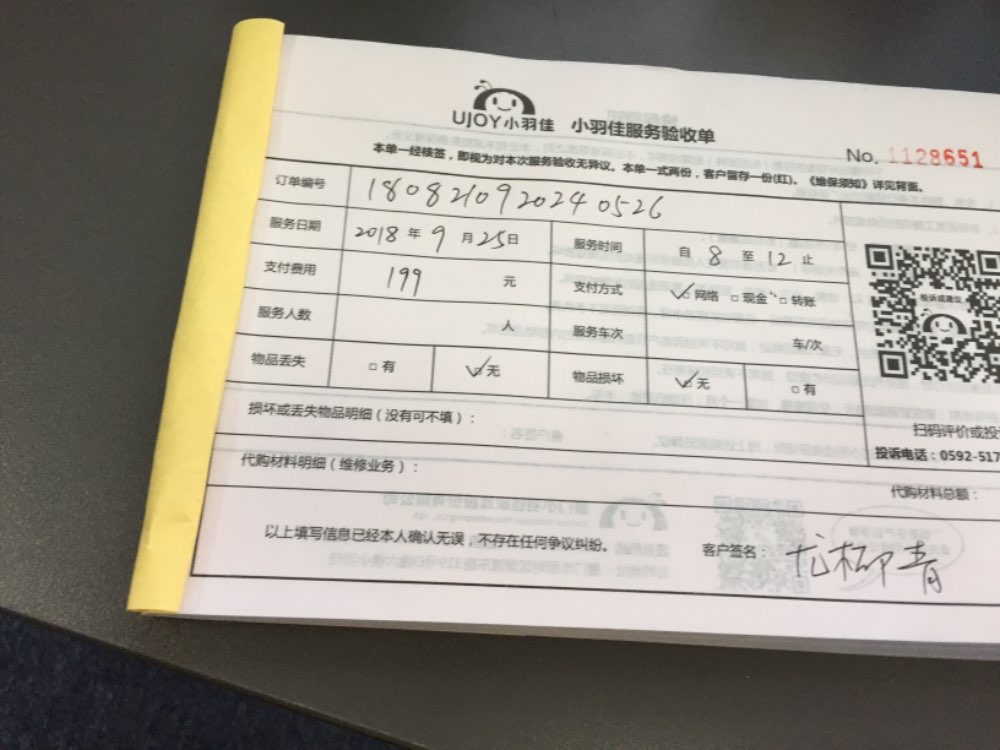 UJOY小羽佳 小羽佳服务验收单
No. 1128651
本单一经核签，即视为对本次服务验收无异议。本单一式两份，客户留存一份(红)。《维保须知》详见背面。
订单编号 180821092024 0526
服务日期 2018年9月25日 服务时间 自8至12止
支付费用 199 元 支付方式 ☑网络 □现金 □转账
服务人数 人 服务车次 车/次
物品丢失 □有 ☑无 物品损坏 ☑无 □有
投诉或建议
损坏或丢失物品明细（没有可不填）：
扫码评价或投
投诉电话：0592-517
代购材料明细（维修业务）：
代购材料总额：
以上填写信息已经本人确认无误，不存在任何争议纠纷。
客户签名：尤柳青